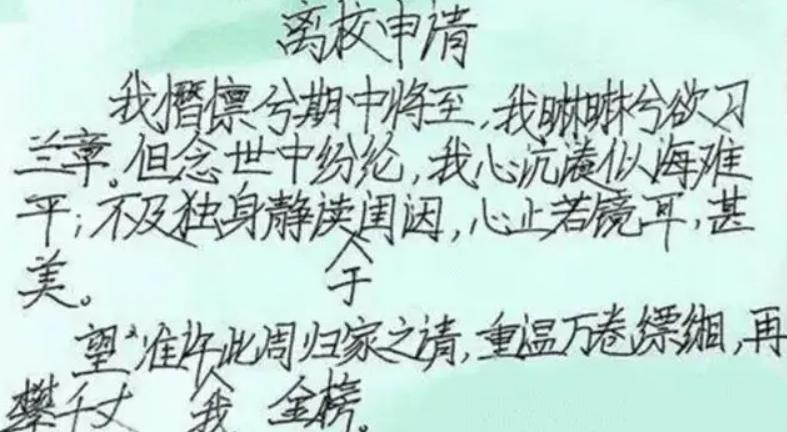 离校申请
我憯懔兮期中将至,我晽晽兮欲习
兰章。但念世中纷纶,我心沉凑似海难
平;不及独身静读闺因,心止若镜耳,甚
美。 于
望准许此周归家之请,重温万卷缥缃,再
攀千丈 我 金榜。